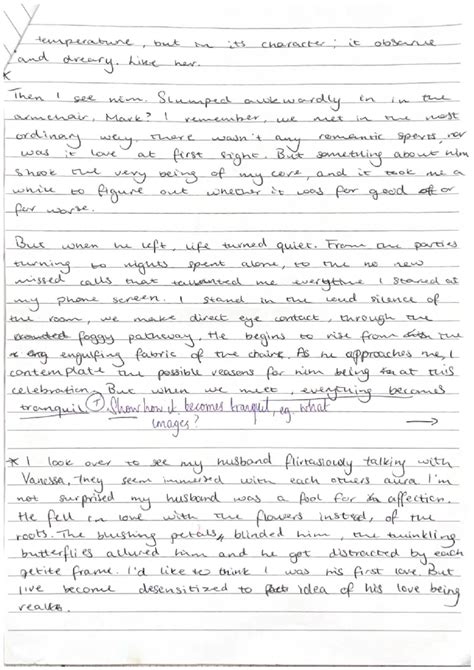 temperature, but in its character; it obscure
and dreary. Like her.
Then I see him. Slumped awkwardly in in the
armchair. Mark? I remember, we met in the most
ordinary way. There wasn't any romantic sports, nor
was it love at first sight. But something about him
shook the very being of my core, and it took me a
while to figure out whether it was for good or
for worse.
But when he left, life turned quiet. From the parties
turning to nights spent alone, to the no new
missed calls that taunted me everytime I stared at
my phone screen. I stand in the loud silence of
the room, we make direct eye contact, through the
foggy pathway. He begins to rise from the
engulfing fabric of the chaire. As he approaches me, I
contemplate the possible reasons for him being at this
celebration. But when we meet, everything becomes
tranquil Show how it becomes tranquil, eg. what
images?
* I look over to see my husband flirtasiously talking with
Vanessa, they seem immersed with each others aura I'm
not surprised my husband was a fool for affection.
He fell in love with the flowers instead, of the
roots. The blushing petals blinded him, the twinkling
butterflies allured him and he got distracted by each
petite frame. I'd like to think I was his first love. But
I've become desensitized to idea of his love being
real.